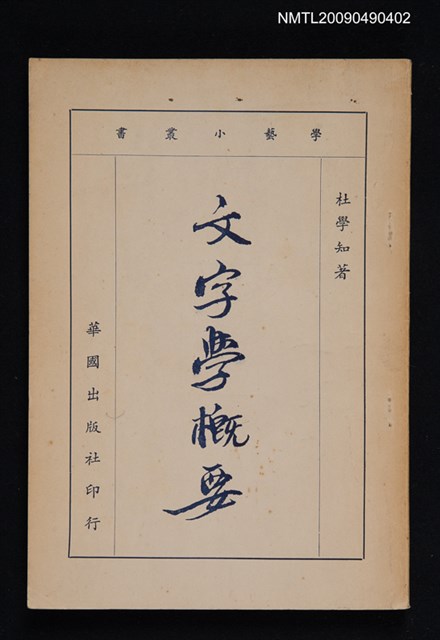 NMTL20090490402
學藝小叢書
杜學知著
文字學概要
華國出版社印行